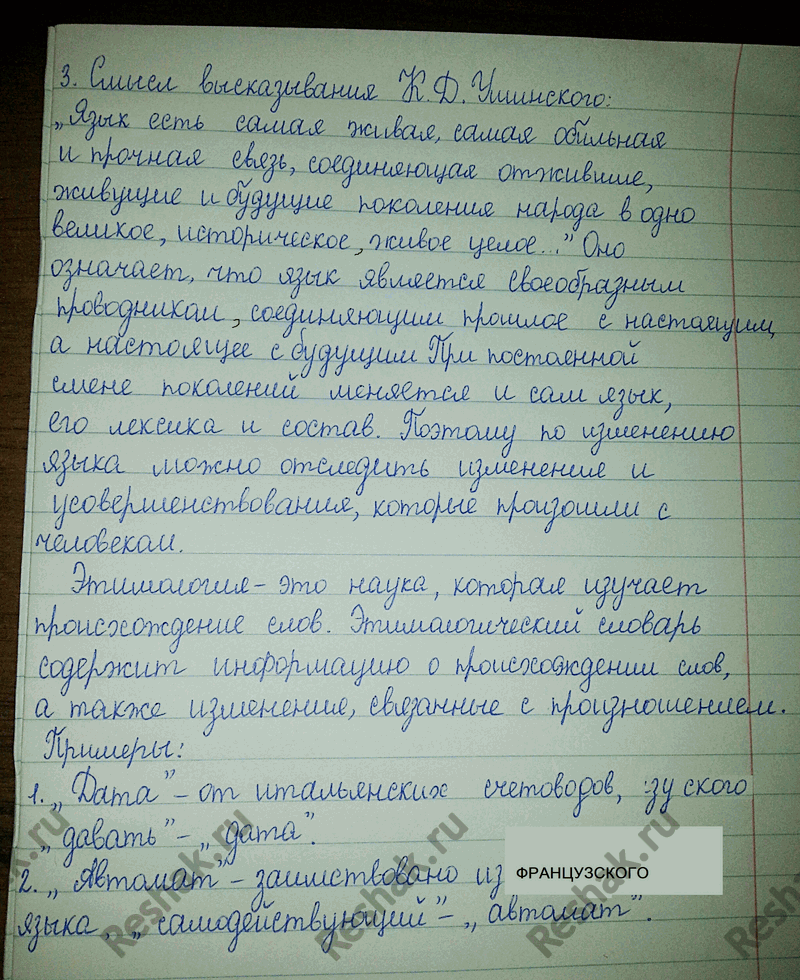 3. Смысл высказывания К.Д. Ушинского:
„Язык есть самая живая, самая обильная
и прочная связь, соединяющая отжившие,
живущие и будущие поколения народа в одно
великое, историческое, живое целое...” Оно
означает, что язык является своеобразным
проводником, соединяющим прошлое с настоящим,
а настоящее с будущим При постоянной
смене поколений меняется и сам язык,
его лексика и состав. Поэтому по изменению
языка можно отследить изменение и
усовершенствования, которые произошли с
человеком.
Этимология – это наука, которая изучает
происхождение слов. Этимологический словарь
содержит информацию о происхождении слов,
а также изменение, связанные с произношением.
Примеры:
1. „Дата” – от итальянских счетоводов,
„давать” – „дата”.
2. „Автомат” – заимствовано из ФРАНЦУЗСКОГО
языка, „самодействующий” – „автомат”.
Reshak.ru
Reshak.ru
Reshak.ru
Reshak.ru